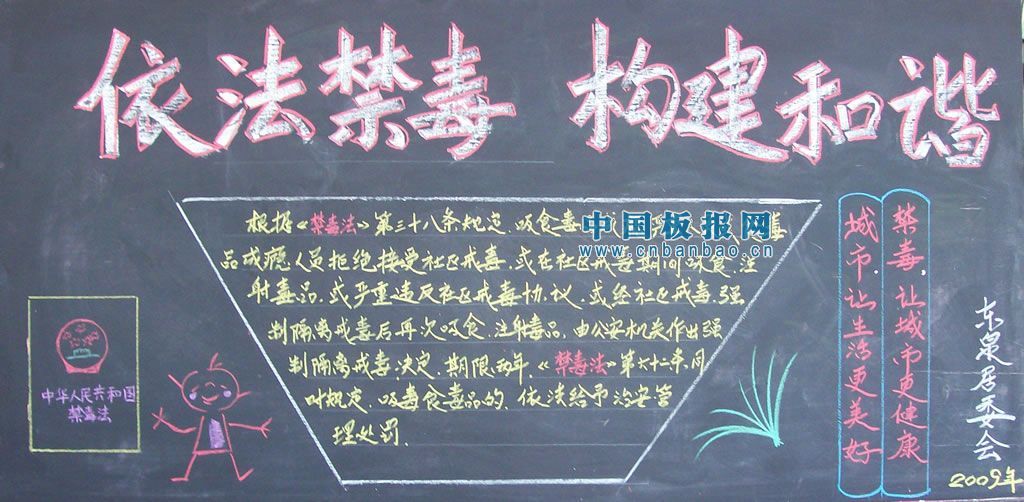 依法禁毒 构建和谐
根据《禁毒法》第三十八条规定,吸食毒
品成瘾人员拒绝接受社区戒毒,或在社区戒毒期间吸食、注
射毒品,或严重违反社区戒毒协议,或经社区戒毒、强
制隔离戒毒后再次吸食、注射毒品,由公安机关作出强
制隔离戒毒决定,期限两年,《禁毒法》第六十二条,同
时规定,吸毒食毒品的,依法给予治安管
理处罚.
中国板报网
www.cnbanbao.cn
中华人民共和国
禁毒法
禁毒,让城市更健康
城市,让生活更美好
东泉居委会
2009年